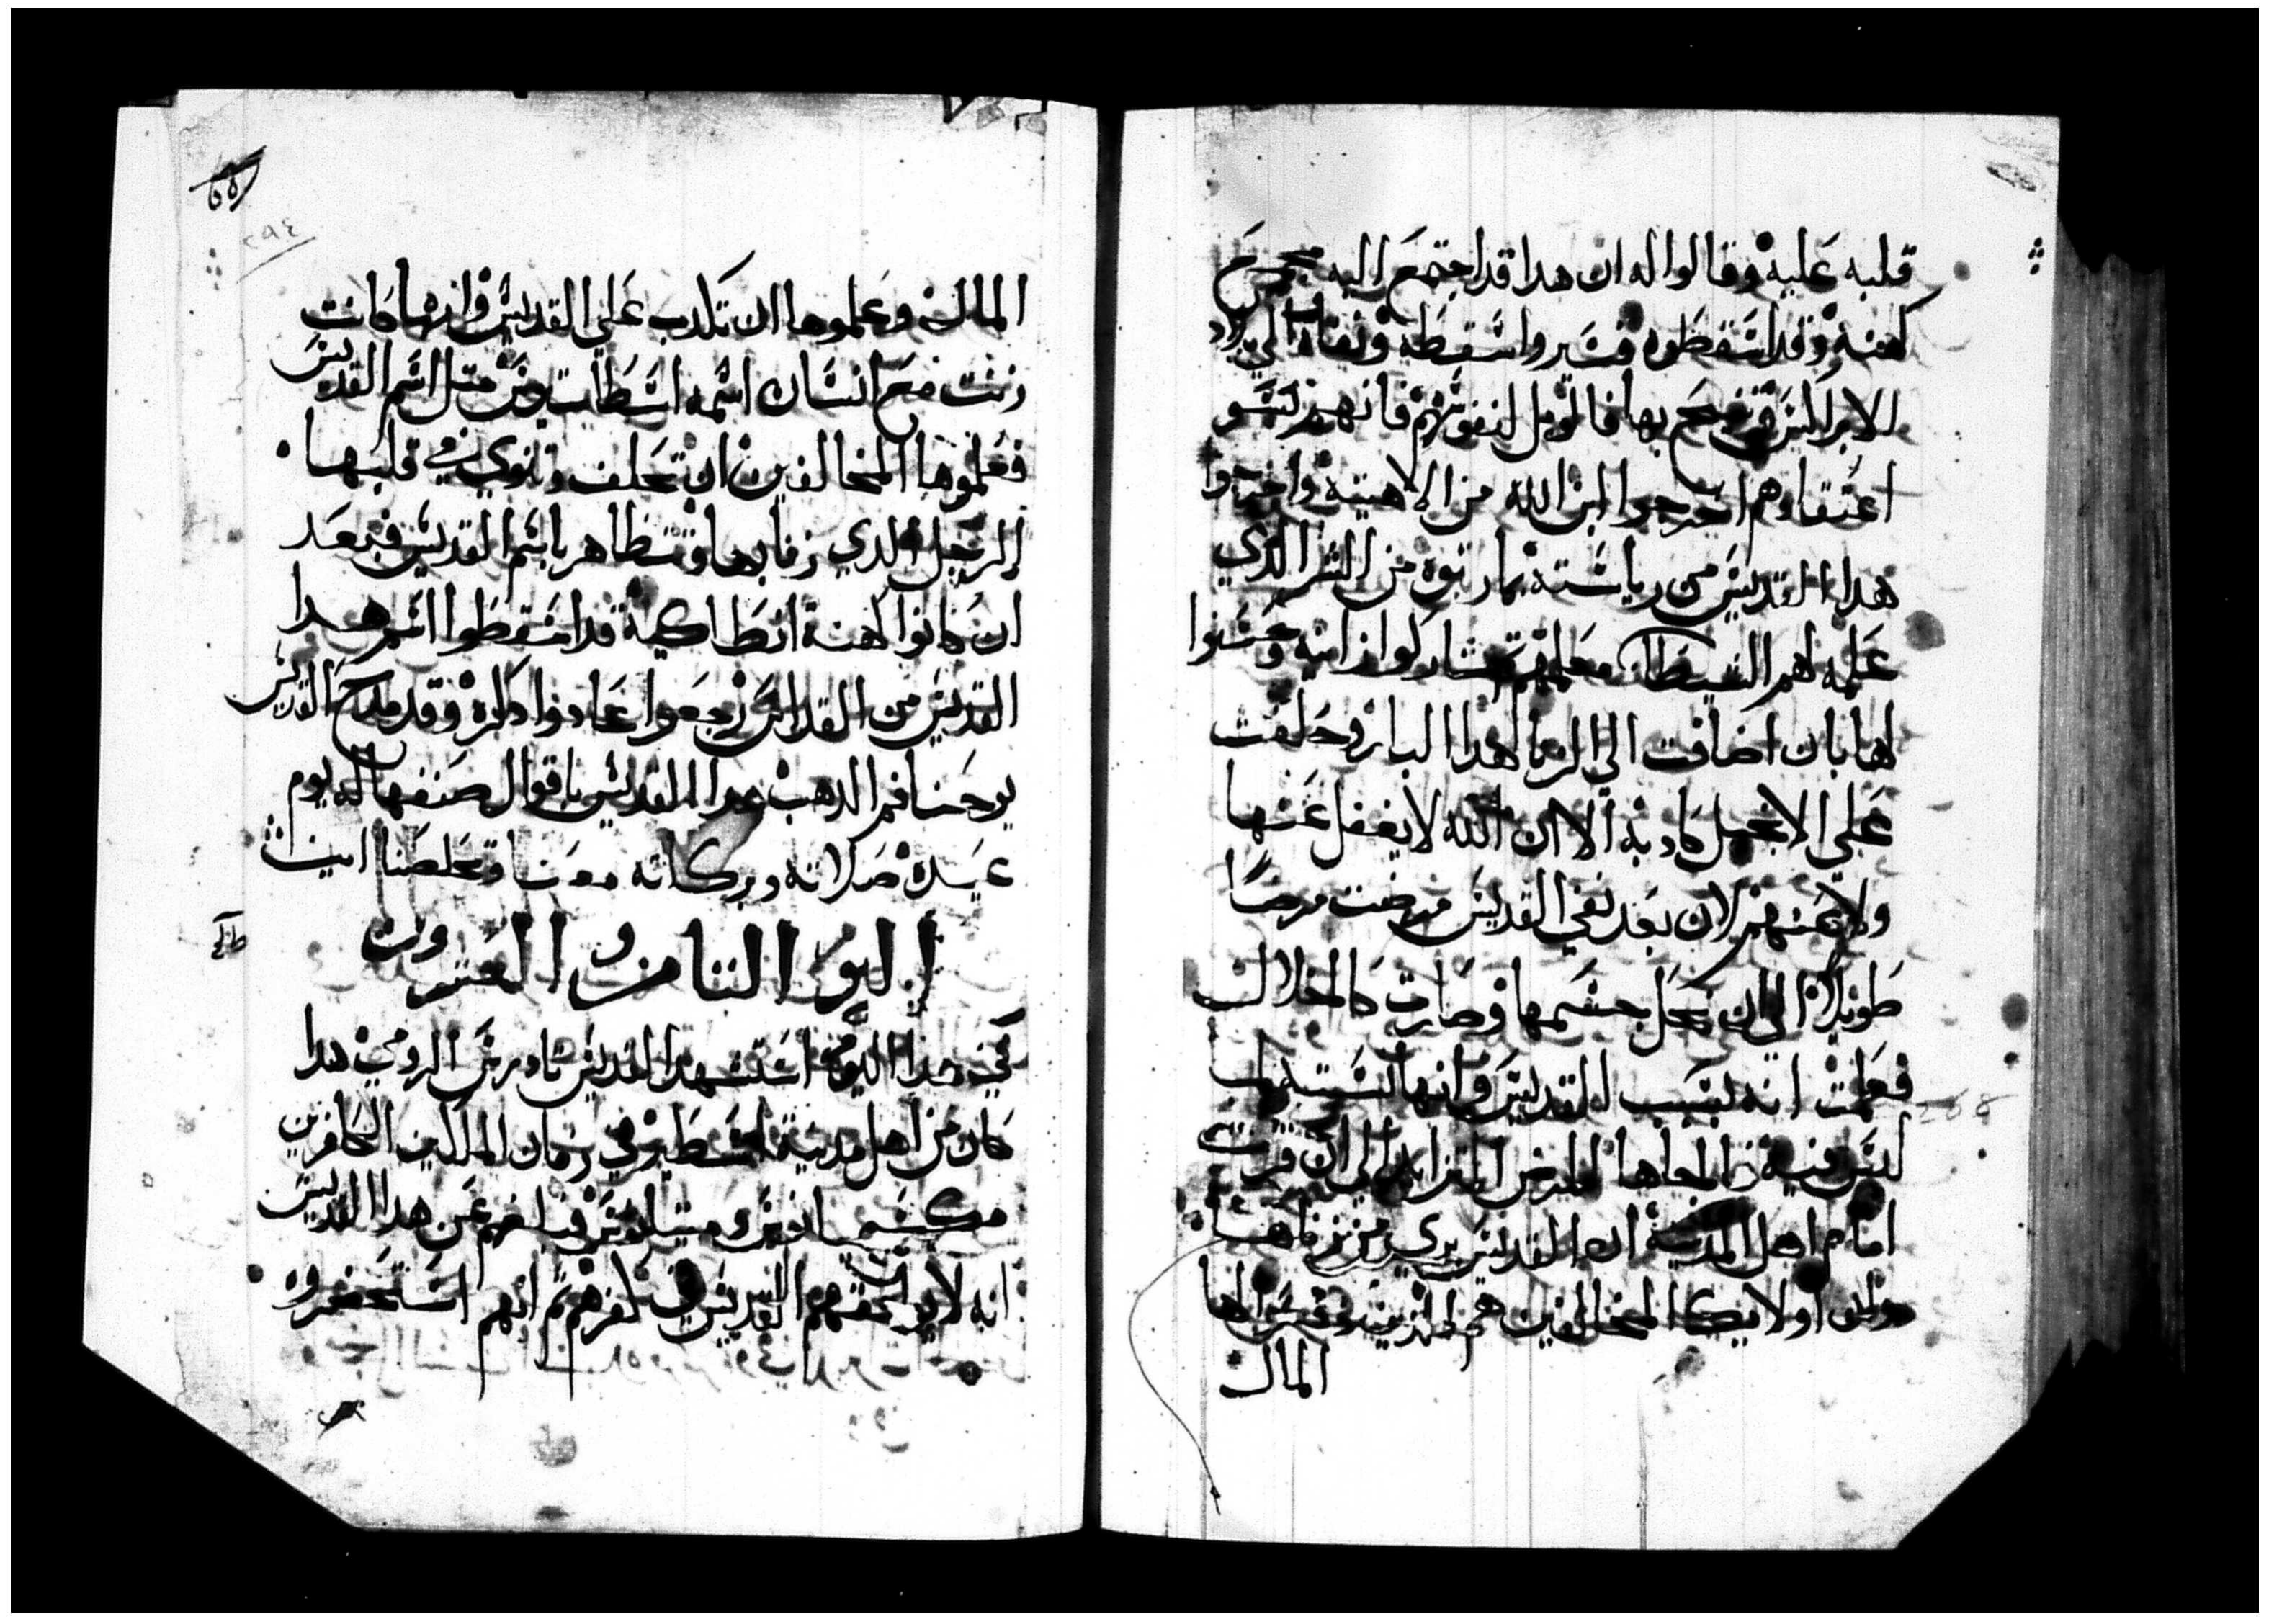 قلبه عليه وقالوا له ان هدا قد اجتمع اليه مجمع
كهنه وقد اسقطوه فسير واسقطه ونفاه الي بلاد
اعتقادهم اخرجوا ابن الله من الالاهيته واخرجوا
هدا القديس من رياسته بما رتبوه من الشر الدي
علمه لهم الشيطان معلمهم شاركوا زانيه وحسنوا
لها بان اضافت الي الزنا لهدا البار وحلفت
علي الانجيل كادبه الا ان الله لا يغفل عنها
ولا عنهم لان بعد نفي القديس مرضت مرضا
طويلا الي ان نحل جسمها وصارت كالخلال
فعلمت انه بسبب القديس وانها
المرض المتزايد الي ان قررت
امام اهل المدينة ان القديس بري من زناها
وان اوليك المخالفين هم الدين
المال
المال وعلموها ان تكدب علي القديس وانها كانت
زنت مع انسان اسمه اسطاتيوس مثل اسم القديس
فعلموها المخالفين ان تحلف وتنوي في قلبها
الرجل الدي زنا بها وتتظاهر باسم القديس فبعد
ان كانوا كهنة انطاكية قد اسقطوا اسم هدا
القديس من القداس رجعوا عادوا دكره وقد مدح القديس
يوحنا فم الدهب هدا القديس باقوال صنفها له يوم
عيده صلاته وبركاته معنا وتخلصنا امين
اليوم التامن والعشرون
في هدا اليوم استشهد القديس تاودرس الرومي هدا
كان من اهل مدينة اسطير في زمان الملكين الكافرين
مكسيميانوس و فبلغهم عن هدا القديس
انه لا يوافقهم القديس في كفرهم تم انهم استحضروه